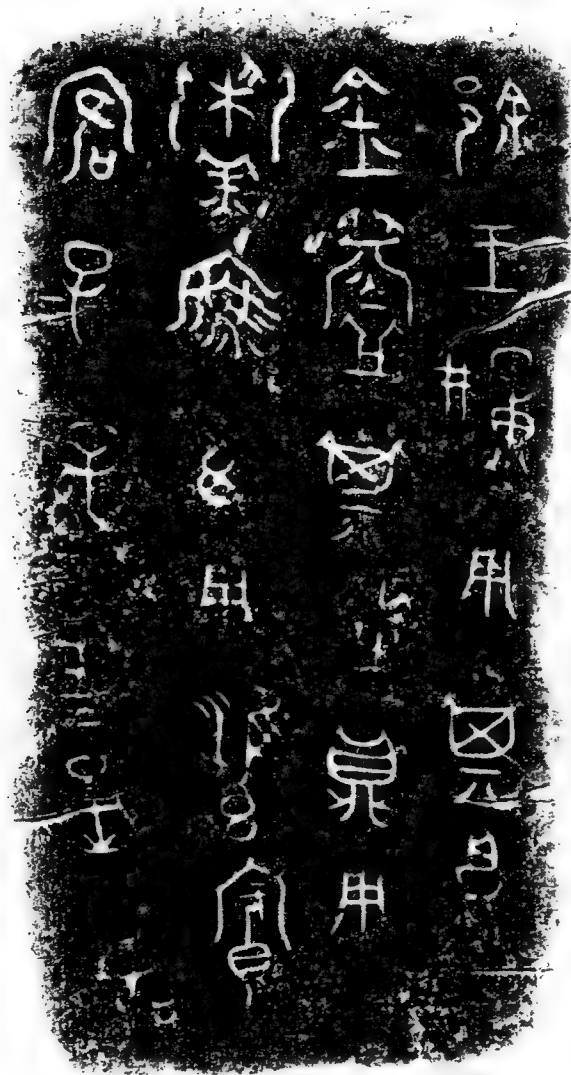 郐王糧用其良
金鑄其饙鼎用
鬻魚腊用雍賓
客子孫世世是若